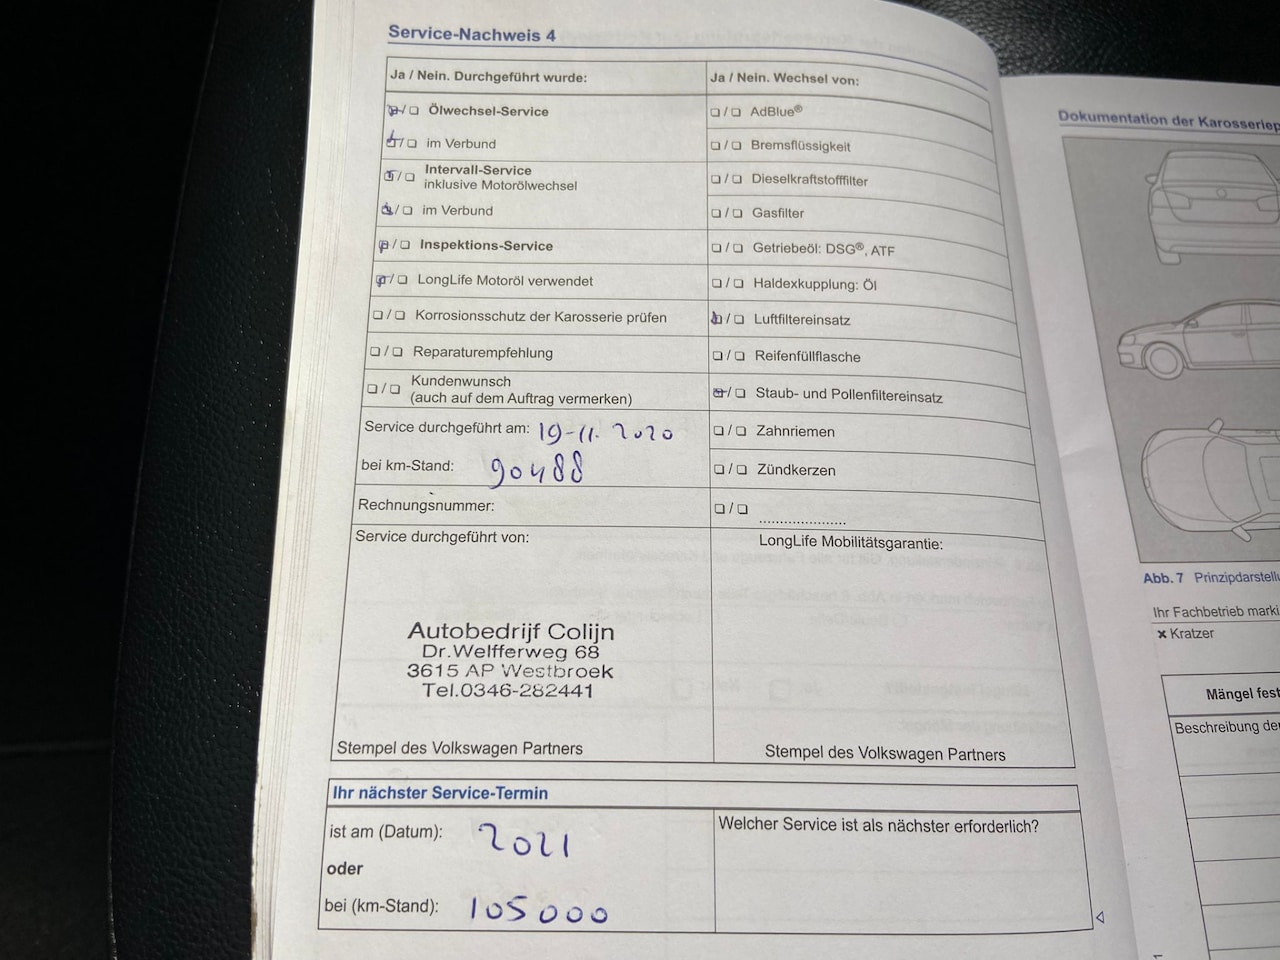 Service-Nachweis 4
Ja / Nein. Durchgeführt wurde:
☒/❏ Ölwechsel-Service
☒/❏ im Verbund
☒/❏ Intervall-Service
inklusive Motorölwechsel
☒/❏ im Verbund
☒/❏ Inspektions-Service
☒/❏ LongLife Motoröl verwendet
❏/❏ Korrosionsschutz der Karosserie prüfen
❏/❏ Reparaturempfehlung
❏/❏ Kundenwunsch
(auch auf dem Auftrag vermerken)
Service durchgeführt am: 19-11-2020
bei km-Stand: 90488
Rechnungsnummer:
Service durchgeführt von:
Autobedrijf Colijn
Dr.Welfferweg 68
3615 AP Westbroek
Tel.0346-282441
Stempel des Volkswagen Partners
Ja / Nein. Wechsel von:
❏/❏ AdBlue®
❏/❏ Bremsflüssigkeit
❏/❏ Dieselkraftstofffilter
❏/❏ Gasfilter
❏/❏ Getriebeöl: DSG®, ATF
❏/❏ Haldexkupplung: Öl
☒/❏ Luftfiltereinsatz
❏/❏ Reifenfüllflasche
☒/❏ Staub- und Pollenfiltereinsatz
❏/❏ Zahnriemen
❏/❏ Zündkerzen
❏/❏ .....................
LongLife Mobilitätsgarantie:
Stempel des Volkswagen Partners
Ihr nächster Service-Termin
ist am (Datum): 2021
oder
bei (km-Stand): 105000
Welcher Service ist als nächster erforderlich?
Dokumentation der Karosseriep
Abb. 7 Prinzipdarstellu
Ihr Fachbetrieb marki
× Kratzer
Mängel fest
Beschreibung der